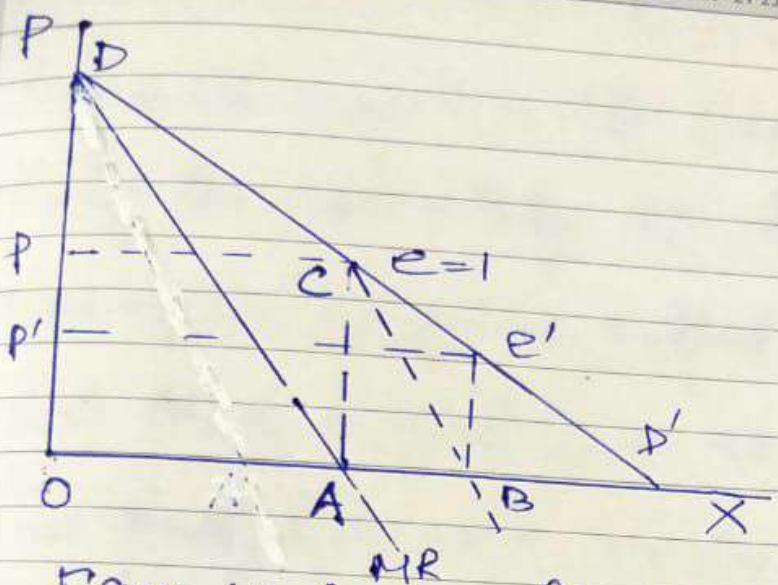 P
D
P
C e=1
P' e'
D'
O A B X
MR